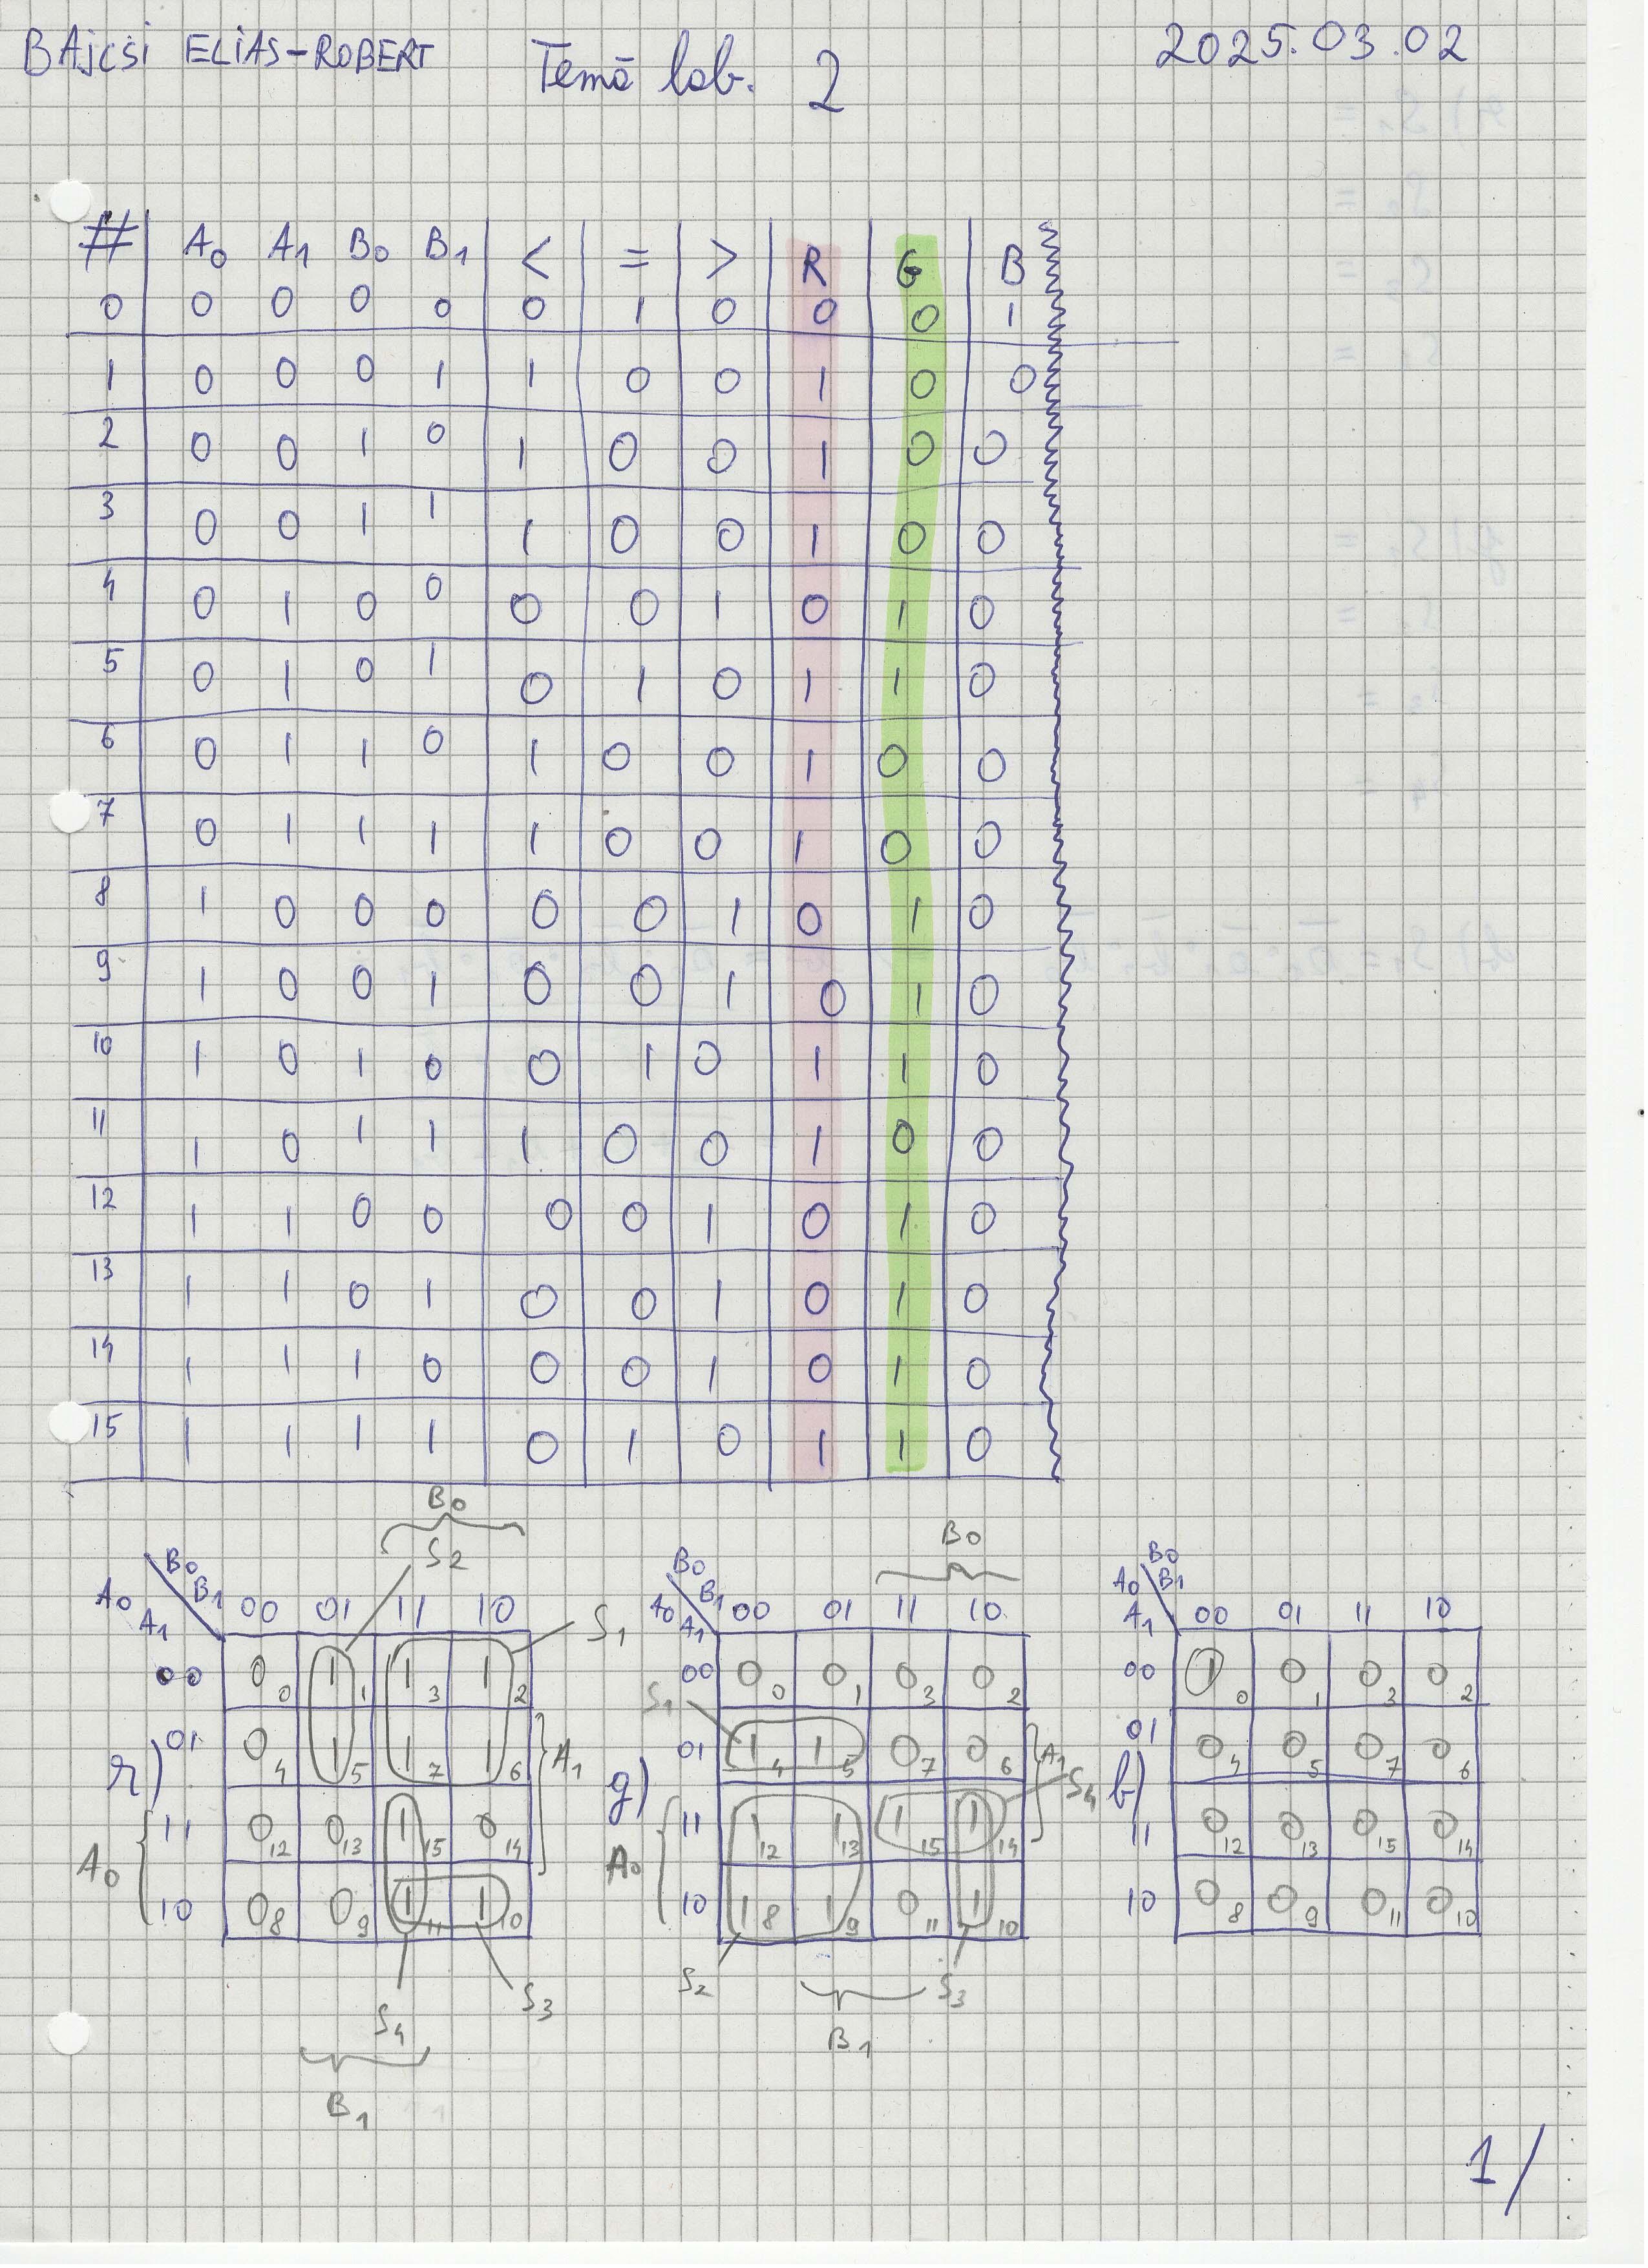 BAJCSI ELIAS-ROBERT Temă lab. 2 2025.03.02
# A0 A1 B0 B1 < = > R G B
0 0 0 0 0 0 1 0 0 0 1
1 0 0 0 1 1 0 0 1 0 0
2 0 0 1 0 1 0 0 1 0 0
3 0 0 1 1 1 0 0 1 0 0
4 0 1 0 0 0 0 1 0 1 0
5 0 1 0 1 0 1 0 1 1 0
6 0 1 1 0 1 0 0 1 0 0
7 0 1 1 1 1 0 0 1 0 0
8 1 0 0 0 0 0 1 0 1 0
9 1 0 0 1 0 0 1 0 1 0
10 1 0 1 0 0 1 0 1 1 0
11 1 0 1 1 1 0 0 1 0 0
12 1 1 0 0 0 0 1 0 1 0
13 1 1 0 1 0 0 1 0 1 0
14 1 1 1 0 0 0 1 0 1 0
15 1 1 1 1 0 1 0 1 1 0
r)
B0
S2
B0
A0 B1
A1 00 01 11 10
S1
00 0 0 1 1 1 3 1 2
01 0 4 1 5 1 7 1 6
A1
11 0 12 0 13 1 15 0 14
A0
10 0 8 0 9 1 11 1 10
S3
S4
B1
g)
B0
B0
A0 B1
A1 00 01 11 10
00 0 0 0 1 0 3 0 2
S1
01 1 4 1 5 0 7 0 6
A1
S4
11 1 12 1 13 1 15 1 14
A0
10 1 8 1 9 0 11 1 10
S2 S3
B1
b)
B0
A0 B1
A1 00 01 11 10
00 1 0 0 1 0 3 0 2
01 0 4 0 5 0 7 0 6
11 0 12 0 13 0 15 0 14
10 0 8 0 9 0 11 0 10
1/